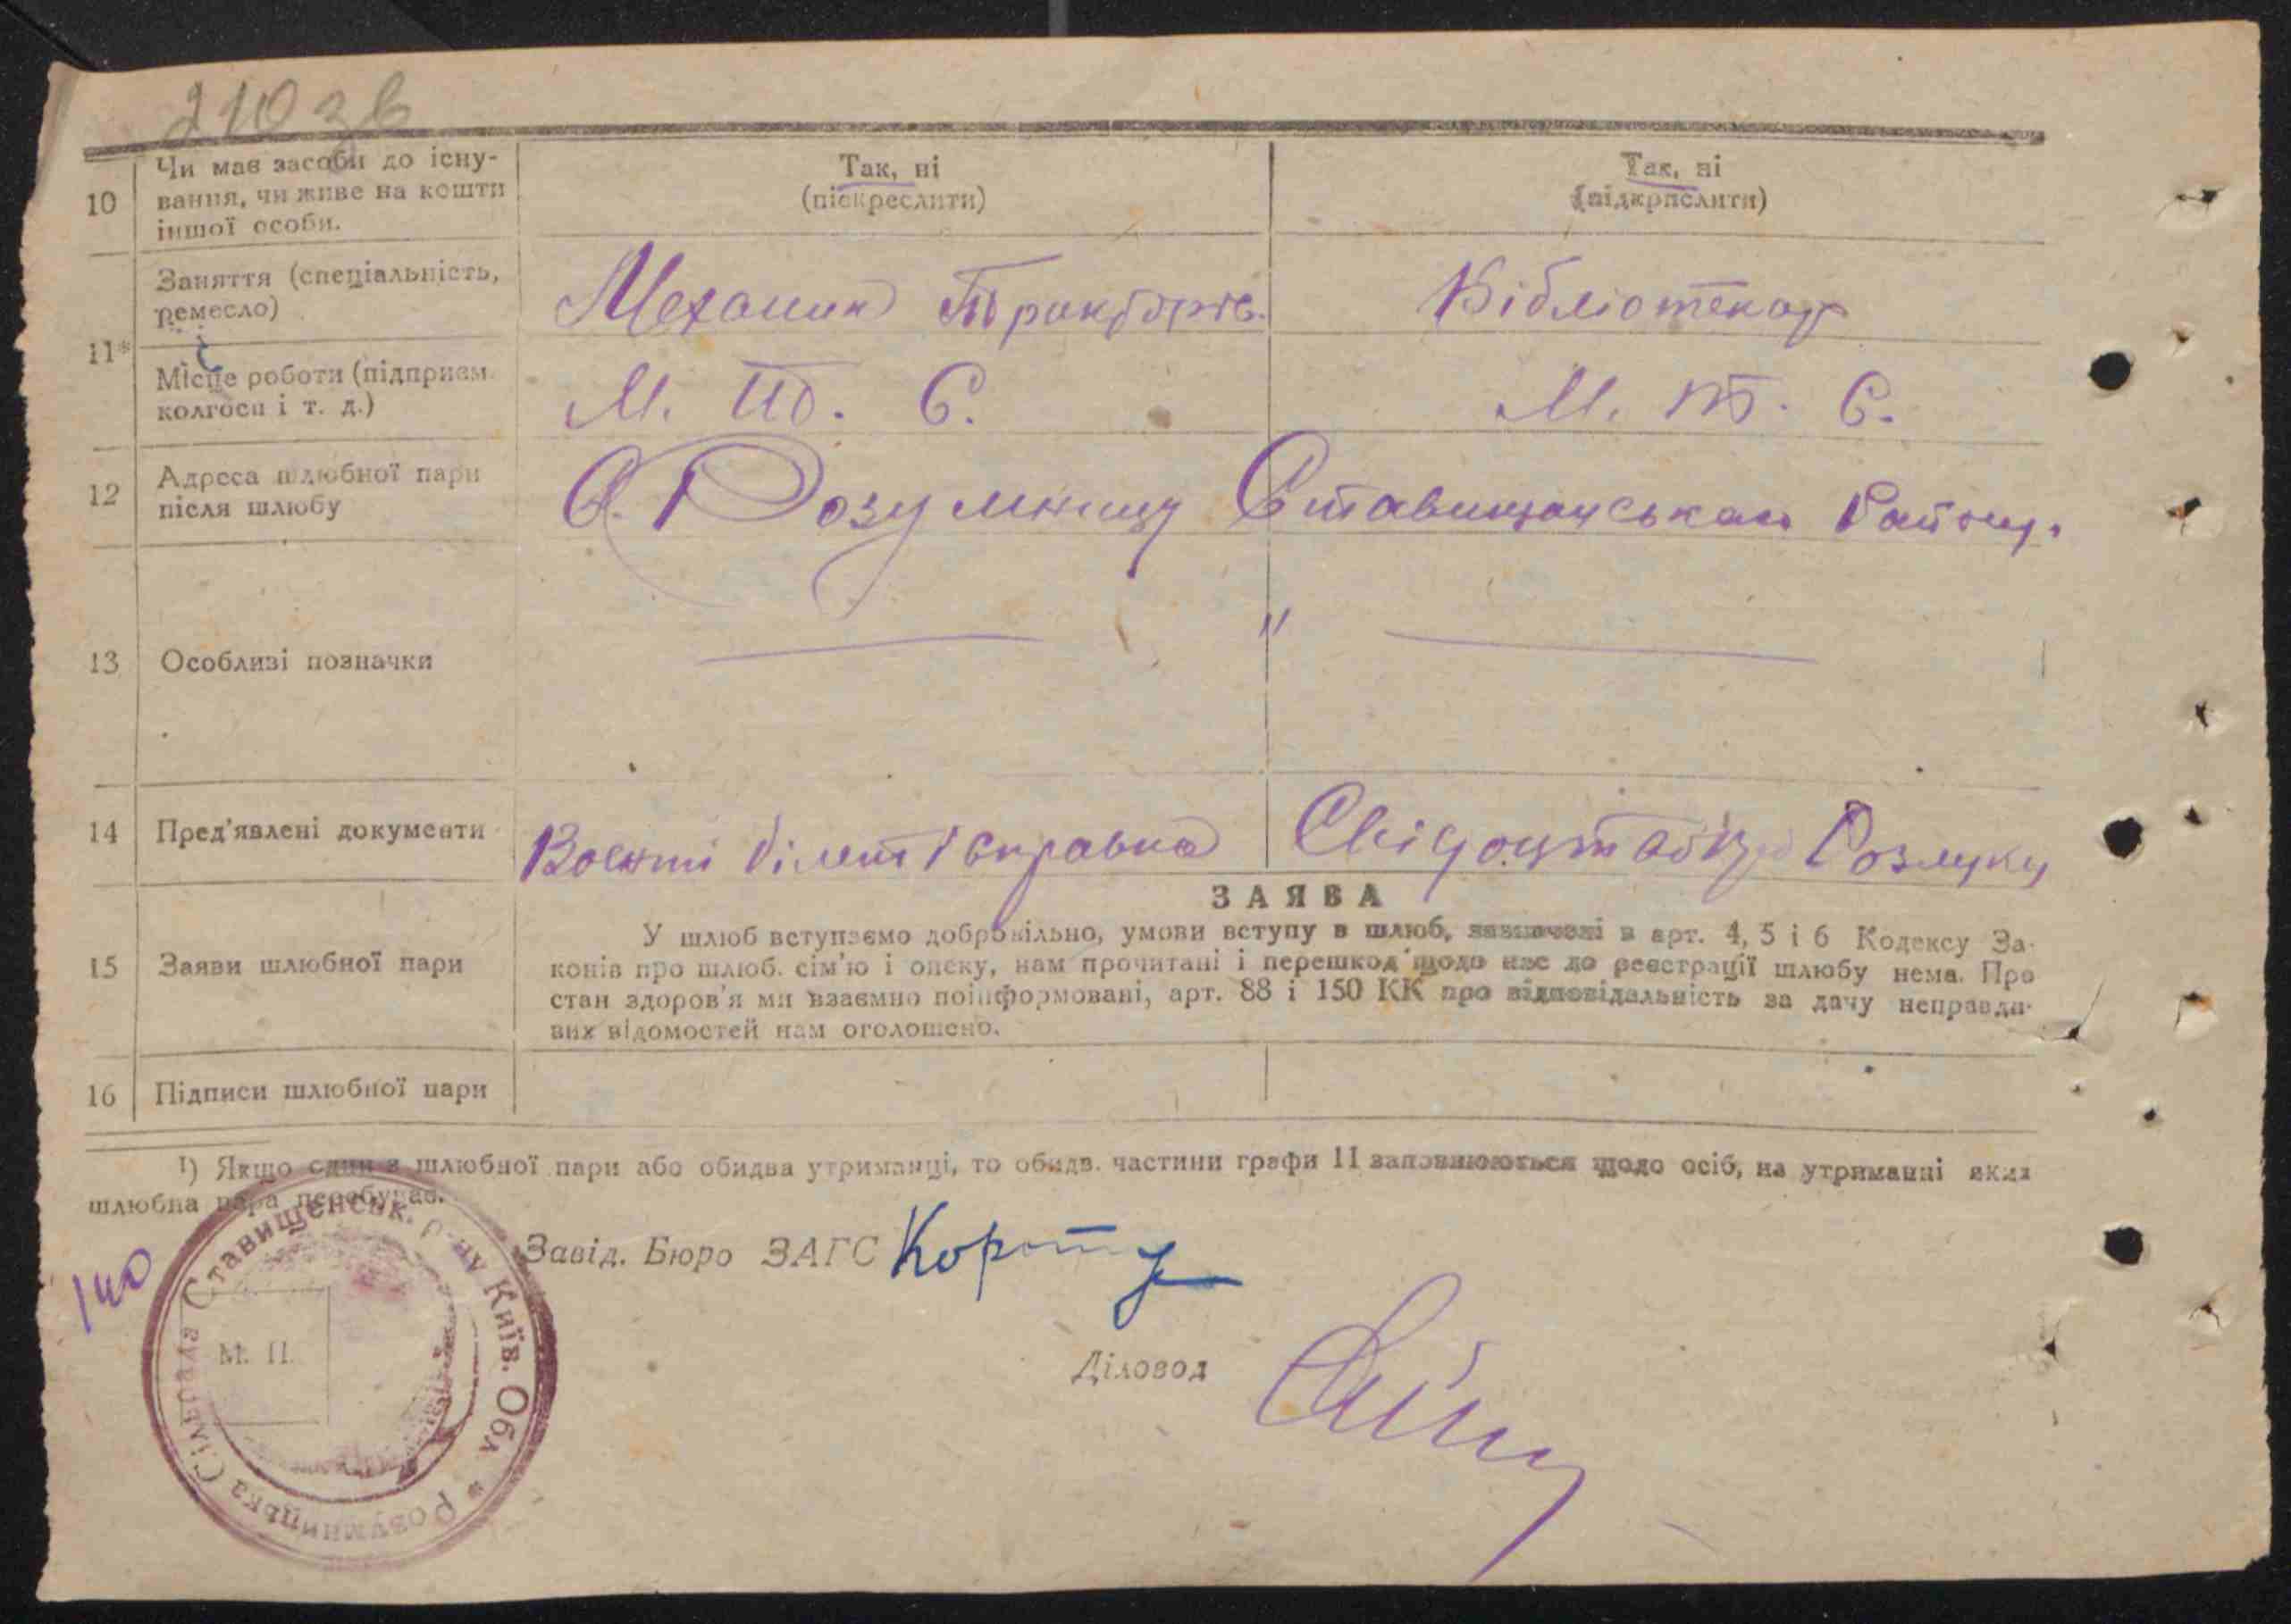 210 зв
10 Чи має засоби до існу-
вання, чи живе на кошти
іншої особи.
Так, ні
(піскреслити)
Так, ні
(підкрпслити)
11* Заняття (спеціальність,
ремесло)
Механик Тракторів.
Бібліотекар
Місце роботи (підприєм.
колгосп і т. д.)
М. Т. С.
М. Т. С.
12 Адреса шлюбної пари
після шлюбу
С. Розумниця Ставищанськам Району.
13 Особливі позначки
— " —
14 Пред'явлені документи
Воєнні білет і справка
Свідоцтво Розлуку
15 Заяви шлюбної пари
ЗАЯВА
У шлюб вступаємо добровільно, умови вступу в шлюб, зазначені в арт. 4, 5 і 6 Кодексу За-
конів про шлюб. сім'ю і опєку, нам прочитані і перешкод щодо нас до реєстрації шлюбу нема. Про
стан здоров'я ми взаємно поінформовані, арт. 88 і 150 КК про відповідальність за дачу неправди-
вих відомостей нам оголошено.
16 Підписи шлюбної пари
1) Якщо один з шлюбної пари або обидва утриманці, то обидв. частини графи 11 заповнюються щодо осіб, на утриманні яких
шлюбна пара перебуває.
Завід. Бюро ЗАГС
Діловод
140
М. П.
Розумницька Сільрада Ставищенськ. р-ну Київ. Обл. *